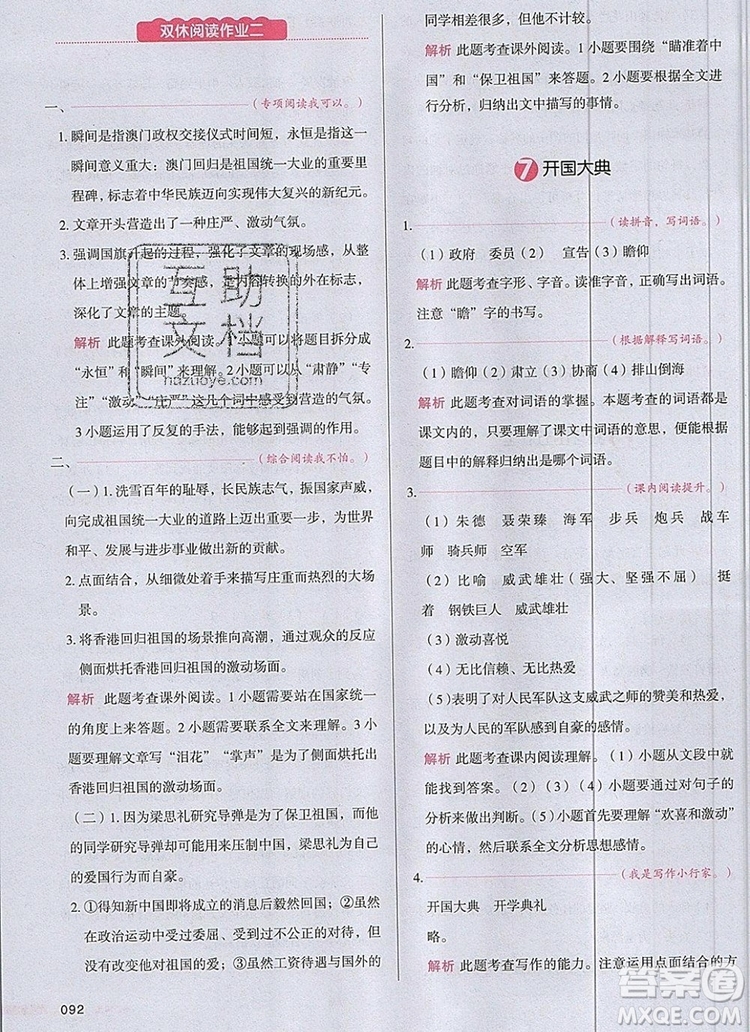 双休阅读作业二
一、（专项阅读我可以。）
1. 瞬间是指澳门政权交接仪式时间短，永恒是指这一
瞬间意义重大：澳门回归是祖国统一大业的重要里
程碑，标志着中华民族迈向实现伟大复兴的新纪元。
2. 文章开头营造出了一种庄严、激动气氛。
3. 强调国旗升起的过程，强化了文章的现场感，从整
体上增强文章的节奏感，是内容转换的外在标志，
深化了文章的主题。
解析 此题考查课外阅读。1 小题可以将题目拆分成
“永恒”和“瞬间”来理解。2 小题可以从“肃静”“专
注”“激动”“庄严”这几个词中感受到营造的气氛。
3 小题运用了反复的手法，能够起到强调的作用。
二、（综合阅读我不怕。）
（一）1. 洗雪百年的耻辱，长民族志气，振国家声威，
向完成祖国统一大业的道路上迈出了重要一步，为世界和
平、发展与进步事业做出新的贡献。
2. 点面结合，从细微处着手来描写庄重而热烈的大场
景。
3. 将香港回归祖国的场景推向高潮，通过观众的反应
侧面烘托香港回归祖国的激动场面。
解析 此题考查课外阅读。1 小题需要站在国家统一
的角度上来答题。2 小题需要联系全文来理解。3 小
题要理解文章写“泪花”“掌声”的作用，侧面烘托出
香港回归祖国的激动场面。
（二）1. 因为梁思礼研究导弹是为了保卫祖国，而他
的同学研究导弹可以用来压制中国，梁思礼为自己
的爱国行为而自豪。
2. ①得知新中国即将成立的消息后毅然回国；②虽然
在政治运动中受过委屈、受到过不公正的待遇，
但没有改变他对祖国的爱；③虽然工资待遇与国外的
092
同学相差很多，但他不计较。
解析 此题考查课外阅读。1 小题要围绕“瞄准着中
国”和“保卫祖国”来答题。2 小题要根据全文进
行分析，归纳出文中描写的事情。
7 开国大典
1.（读拼音，写词语。）
（1）政府 委员（2） 宣告（3）瞻仰
解析 此题考查字形、字音。读准字音，正确写出词语。
注意“瞻”字的书写。
2.（根据解释写词语。）
（1）瞻仰（2）肃立（3）协商（4）排山倒海
解析 此题考查对词语的掌握。本题考查的词语都是
课文内的，只要理解了课文中词语的意思，便能根据
题目中的解释归纳出是哪个词语。
3.（课内阅读提升。）
（1）朱德 聂荣臻 海军 步兵 炮兵 战车
师 骑兵师 空军
（2）比喻 威武雄壮（强大、坚强不屈） 挺
着 钢铁巨人 威武雄壮
（3）激动喜悦
（4）无比信赖、无比热爱
（5）表明了对人民军队这支威武之师的赞美和热爱，
以及为人民的军队感到自豪的感情。
解析 此题考查课内阅读理解。（1）小题从文段中就
能找到答案。（2）（3）（4）小题要通过对句子的分析
来做出判断。（5）小题首先要理解“欢喜和激动”
是什么，然后联系全文分析思想感情。
4.（我是写作小行家。）
开国大典 开学典礼
略。
解析 此题考查写作的能力。注意运用点面结合的方
互助
文档
hdzuoye.com
答案圈
MXQE.COM